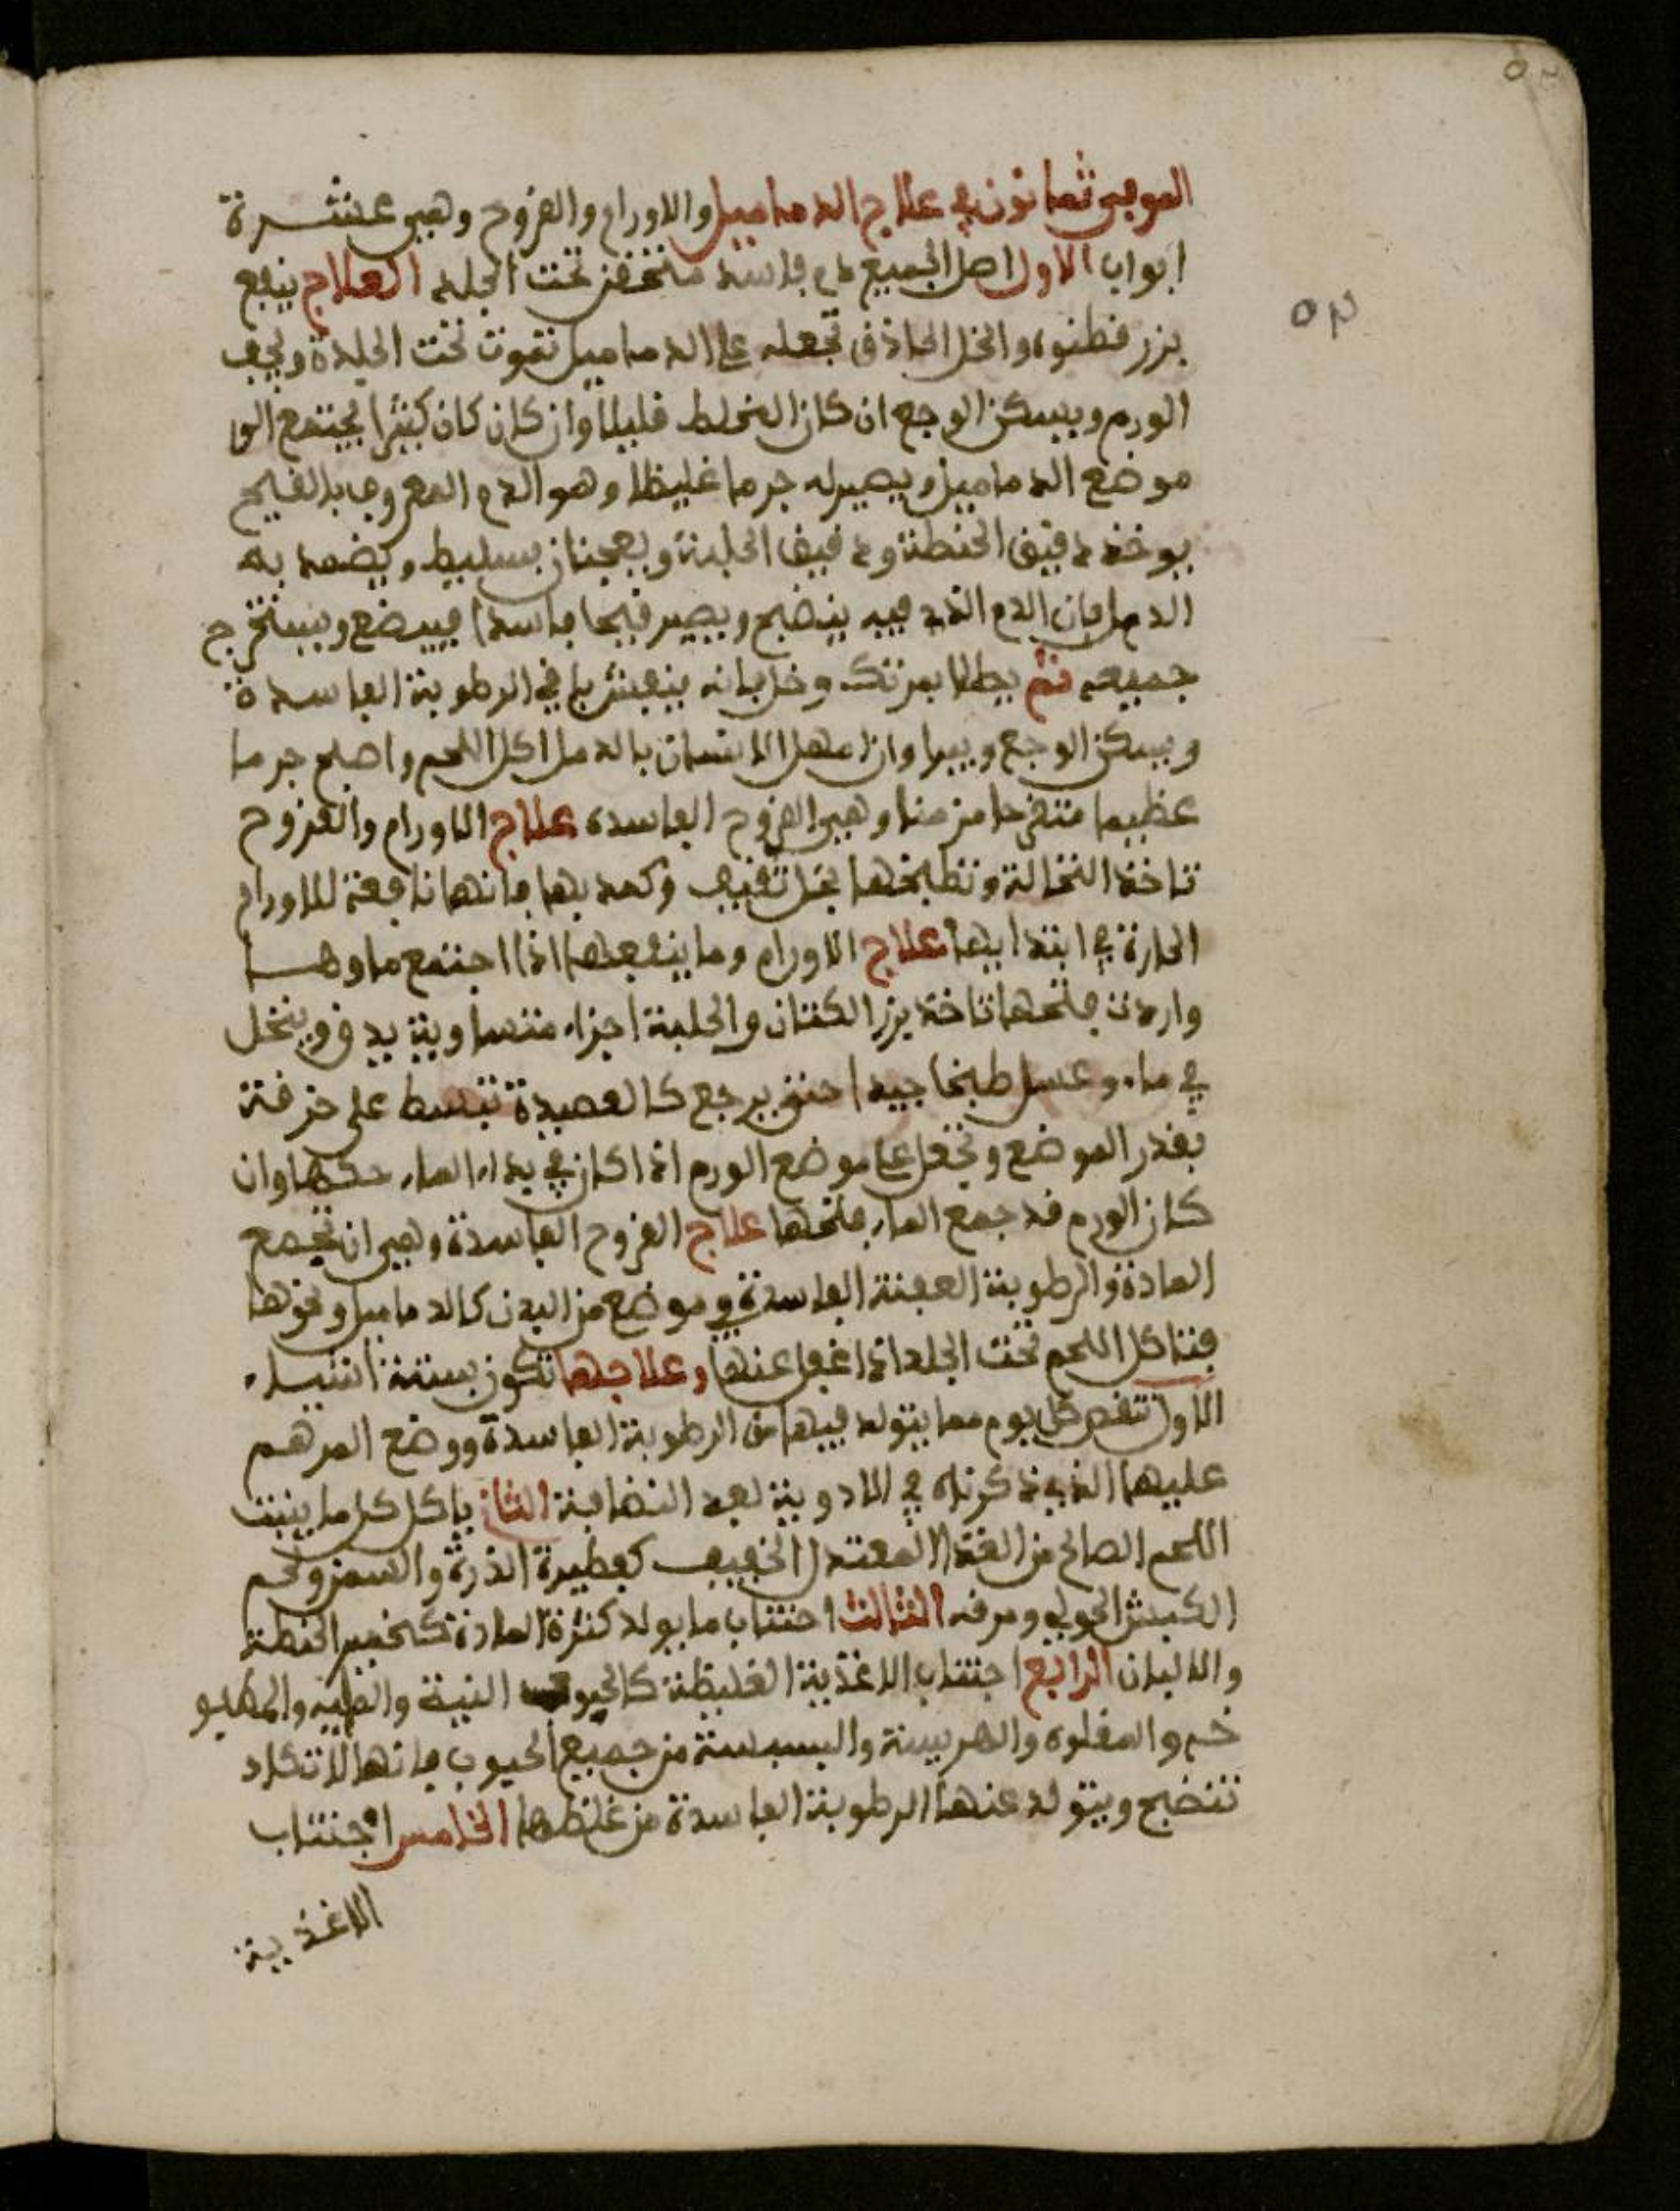 الموفي ثمانون في علاج الدماميل والاورام والقروح وهي عشرة
ابواب الاول اصل الجميع دم فاسد محتقن تحت الجلد العلاج ينفع
بزر قطنوه والخل الحاذق تجعله على الدماميل تموت تحت الجلدة ويجف
الورم ويسكن الوجع ان كان الخلط قليلا وان كان كان كثيرا يجتمع الى
موضع الدماميل ويصير له جرما غليظا وهو الدم المعروف بالقيح
يوخذ دقيق الحنطة ودقيق الحلبة ويعجنان بسليط ويضمد به
الدمل فان الدم الذي فيه ينضج ويصير قيحا فاسدا فيبضع ويستخرج
جميعه ثم يطلا بمرتك وخل فانه ينشف باقي الرطوبة الفاسدة
ويسكن الوجع ويبرا وان اهمل الانسان بالدمل اكل اللحم واصبح جرما
عظيما متقرحا مزمنا وهي القروح الفاسدة علاج الاورام والقروح
تاخذ النخالة وتطبخها بخل ثقيف وكمد بها فانها نافعة للاورام
الحارة في ابتدايها علاج الاورام وما ينفعها اذا اجتمع ماوها
واردت فتحها تاخذ بزر الكتان والحلبة اجزاء متساوية يدق وينخل
في ماء وعسل طبخا جيدا حتى يرجع كالعصيدة تبسط على خرقة
بقدر الموضع وتجعل على موضع الورم اذا كان في بداء الماء حكها وان
كان الورم قد جمع الماء فتحها علاج القروح الفاسدة وهي ان تجمع
المادة والرطوبة العفنة الفاسدة في موضع من البدن كالدماميل ونحوها
فتاكل اللحم تحت الجلد اذا غفل عنها وعلاجها تكون بستة اشياء
الاول تنقص كل يوم مما يتولد فيها من الرطوبة الفاسدة ووضع المرهم
عليها الذي ذكرناه في الادوية لعد النضافة الثاني ياكل كل ما ينبت
اللحم الصالح من الغذا المعتدل الخفيف كفطيرة الذرة والسمن ولحم
الكبش الحولي ومرقه الثالث اجتناب ما يولد كثرة المادة كخمير الحنطة
والالبان الرابع اجتناب الاغذية الغليظة كالحبوب النية
خم والمقلوه والهريسة والبسبسة من جميع الحبوب فانها لا تكاد
تنضج ويتولد عنها الرطوبة الفاسدة من غلظها الخامس اجتناب
الاغذية